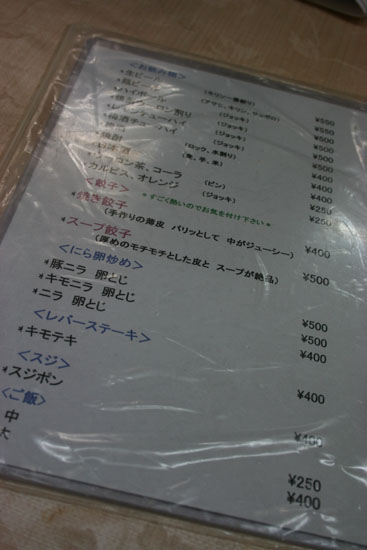 <お飲み物>
*生ビール (キリン一番搾り) ¥500
*瓶ビール (アサヒ、キリン、サッポロ) ¥550
*ハイボール (ジョッキ) ¥500
(ジョッキ) ¥500
(ジョッキ) ¥500
*焼酎 (ロック、水割り) ¥400
(麦、芋、米) ¥400
*ウーロン茶、コーラ (ビン) ¥250
*カルピス、オレンジ (ジョッキ) ¥250
<餃子> *すごく熱いのでお気を付け下さい*
*焼き餃子 ¥400
(手作りの薄皮 パリッとして 中がジューシー)
*スープ餃子 ¥500
(厚めのモチモチとした皮と スープが絶品)
<にら卵炒め>
*豚ニラ 卵とじ ¥500
*キモニラ 卵とじ ¥500
*ニラ 卵とじ ¥400
<レバーステーキ>
*キモテキ ¥400
<スジ>
*スジポン ¥400
<ご飯>
中 ¥250
大 ¥400